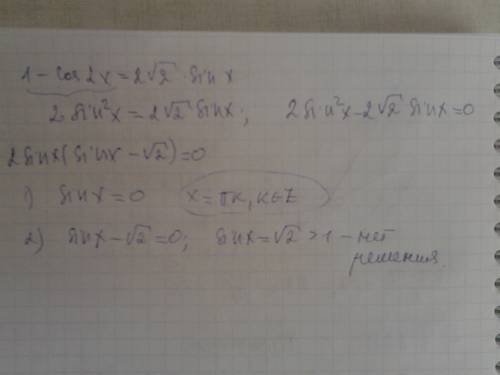 1 - cos 2x = 2√2 · sin x
2 sin²x = 2√2 sin x ; 2 sin²x - 2√2 sin x = 0
2 sin x (sin x - √2) = 0
1) sin x = 0 x = πk, k∈Z
2) sin x - √2 = 0; sin x = √2 > 1 - нет
решения.